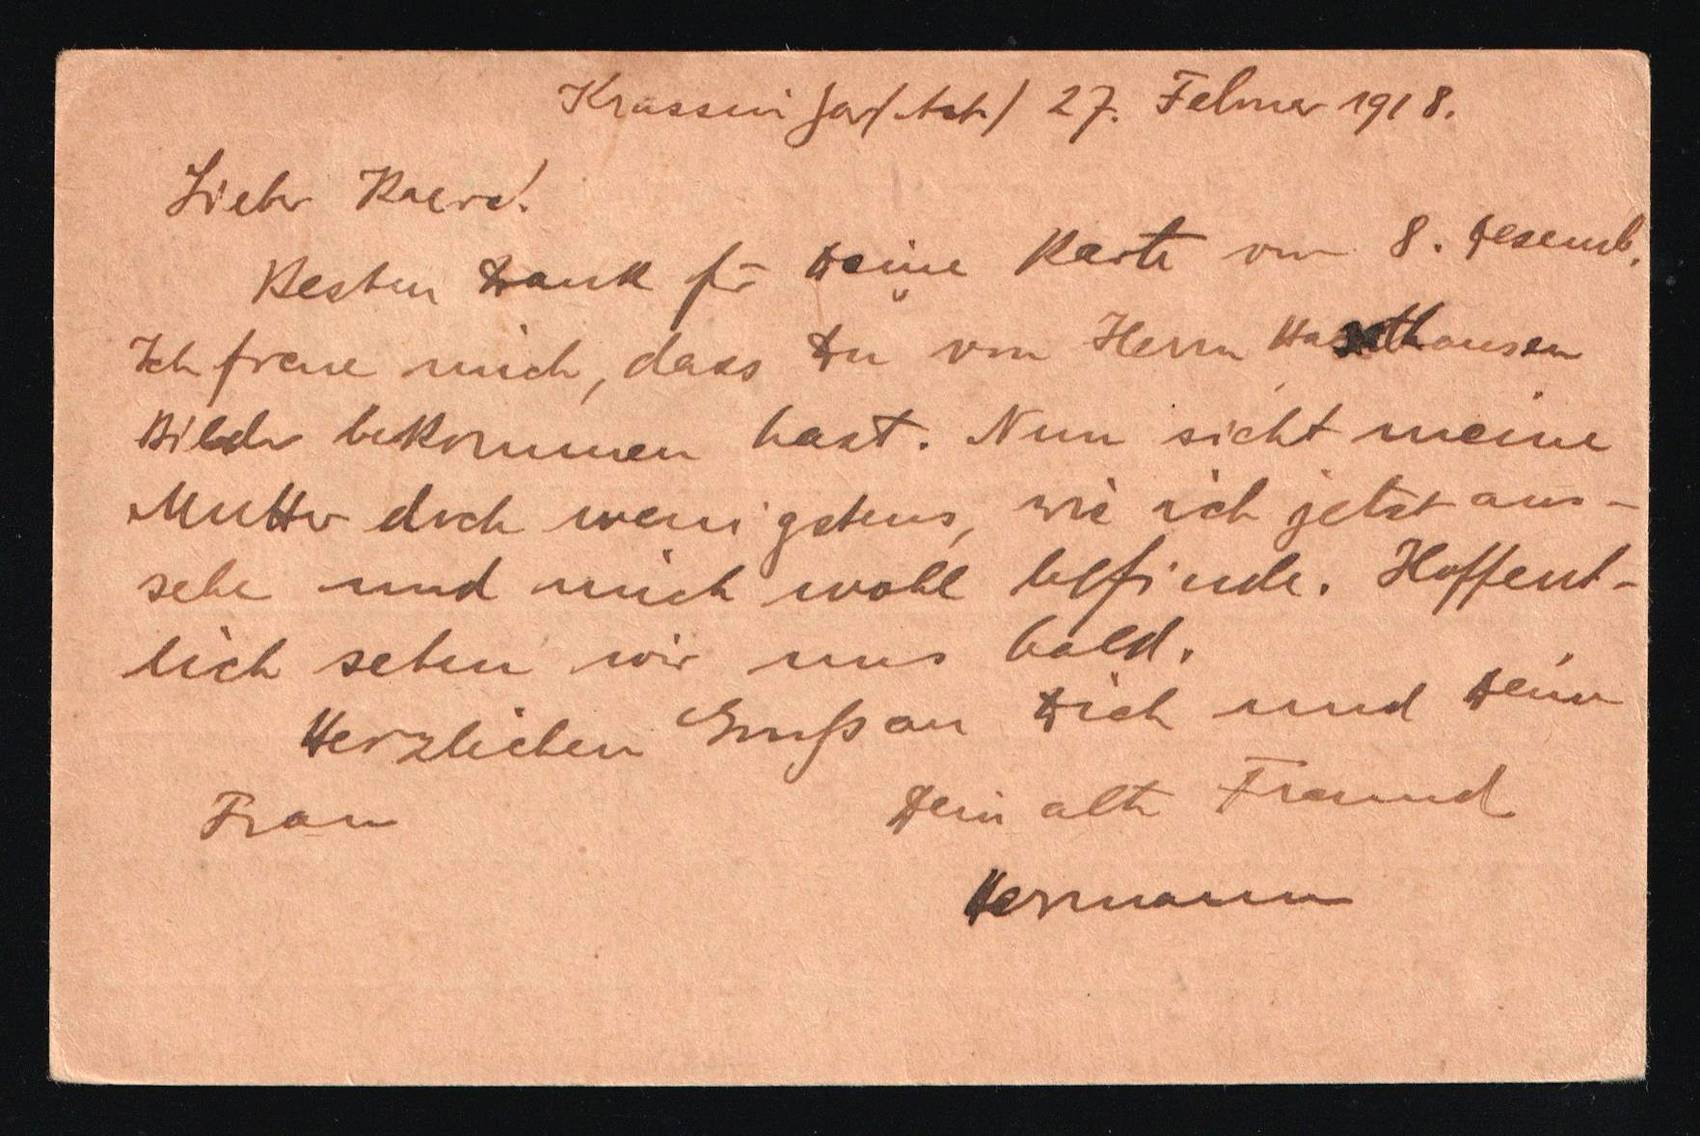 Krassni Jar / Ast. / 27. Februar 1918.
Lieber
Besten Dank für Deine Karte vom 8. Dezemb.
Ich freue mich, dass Du von Herrn
Bilder bekommen hast. Nun sieht meine
Mutter doch wenigstens, wie ich jetzt aus-
sehe und mich wohl befinde. Hoffent-
lich sehen wir uns bald.
Herzlichen Gruß an Dich und Deine
Frau Dein alter Freund
Hermann